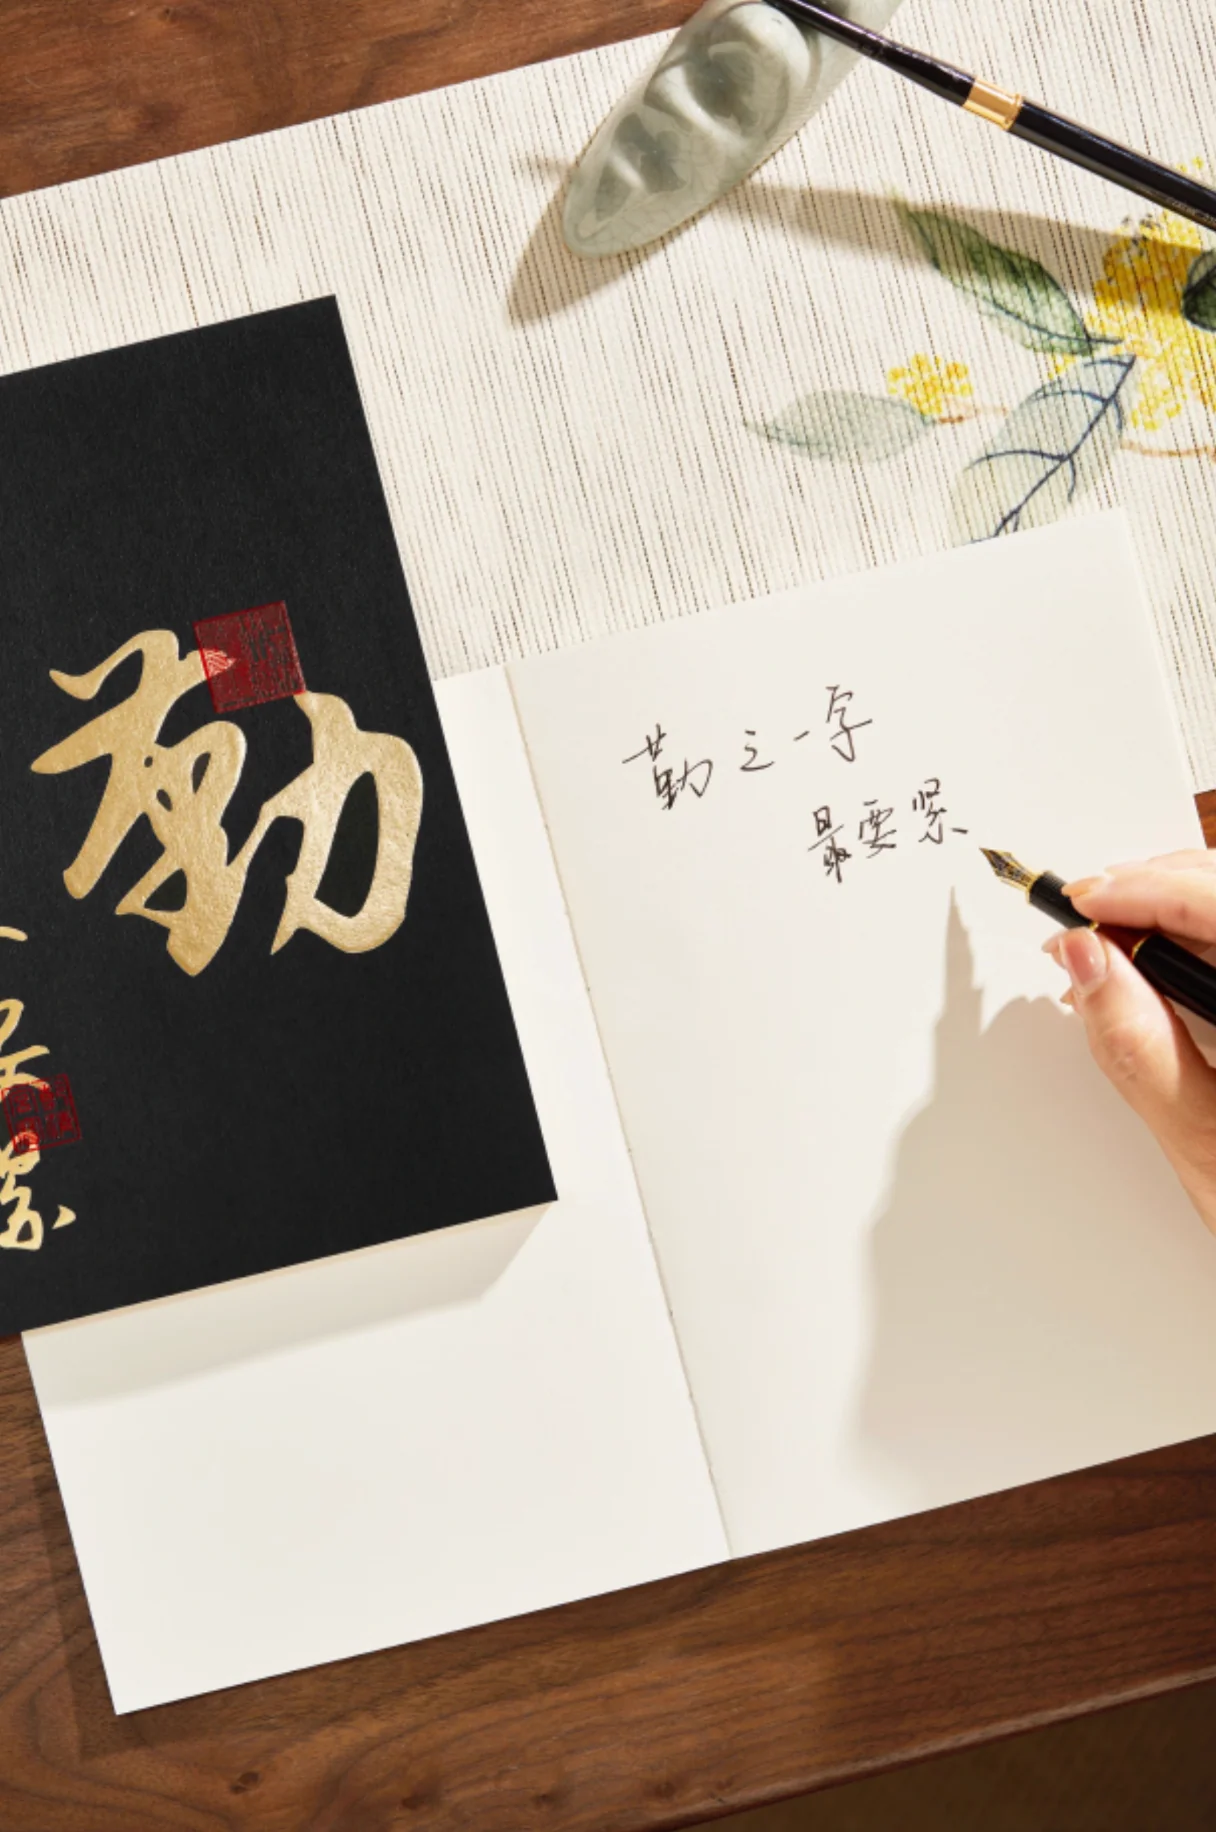 勤
紧
勤之一字
最要紧